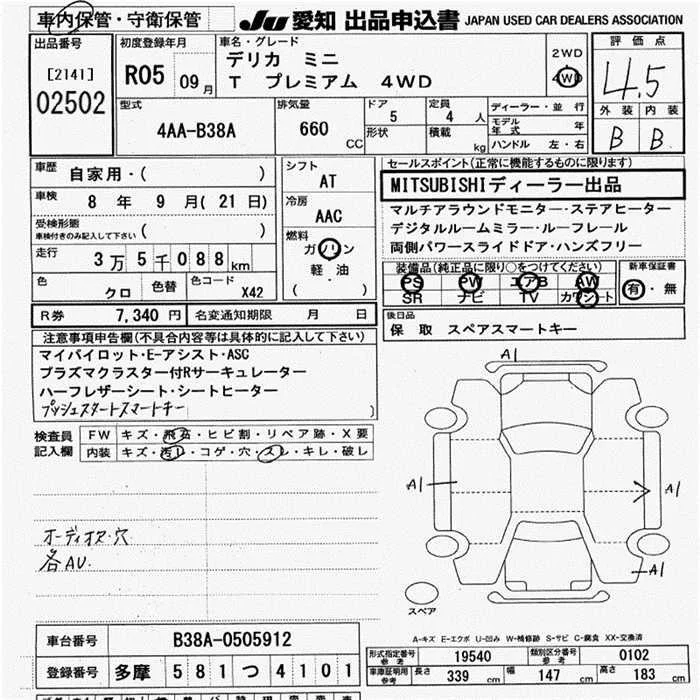 車内保管・守衛保管 Ju 愛知 出品申込書 JAPAN USED CAR DEALERS ASSOCIATION
出品番号 初度登録年月 車名・グレード 評価点
[2141] R05 09月 デリカ ミニ 2WD 4.5
02502 T プレミアム 4WD 4WD 外装 内装
型式 排気量 ドア 5 定員 4 人 ディーラー・並行 B B
4AA-B38A 660 CC 形状 積載 kg モデル年式 年
ハンドル 左・右
車歴 自家用・( ) シフト AT セールスポイント(正常に機能するものに限ります)
車検 8 年 9 月( 21 日) 冷房 AAC MITSUBISHIディーラー出品
受検形態 ( ) マルチアラウンドモニター・ステアヒーター
車検付きのみ記入して下さい デジタルルームミラー・ルーフレール
走行 3万5千088km 燃料 ガソリン 両側パワースライドドア・ハンズフリー
色 クロ 色替 色コード X42 軽油 ( )
装備品(純正品に限り○をつけてください) 新車保証書
PS PW エアB AW 有・無
SR ナビ TV カワシート
R券 7,340 円 名変通知期限 月 日 後日品
保 取 スペアスマートキー
注意事項申告欄(不具合内容等は具体的に記入して下さい)
マイパイロット・E-アシスト・ASC
プラズマクラスター付Rサーキュレーター
ハーフレザーシート・シートヒーター
プッシュスタートスマートキー )
検査員 FW キズ・飛石・ヒビ割・リペア跡・X要
記入欄 内装 キズ・汚レ・コゲ・穴・スレ・キレ・破レ
A1
A1
A1
A1
オーディオス・穴
各AU.
スペア
A-キズ E-エクボ U-凹み W-補修跡 S-サビ C-腐食 XX-交換済
車台番号 B38A-0505912
登録番号 多摩 581 つ 4101
形式指定番号 参考 19540 類別区分番号 参考 0102
車庫証明用 参考 長さ 339 cm 幅 147 cm 高さ 183 cm